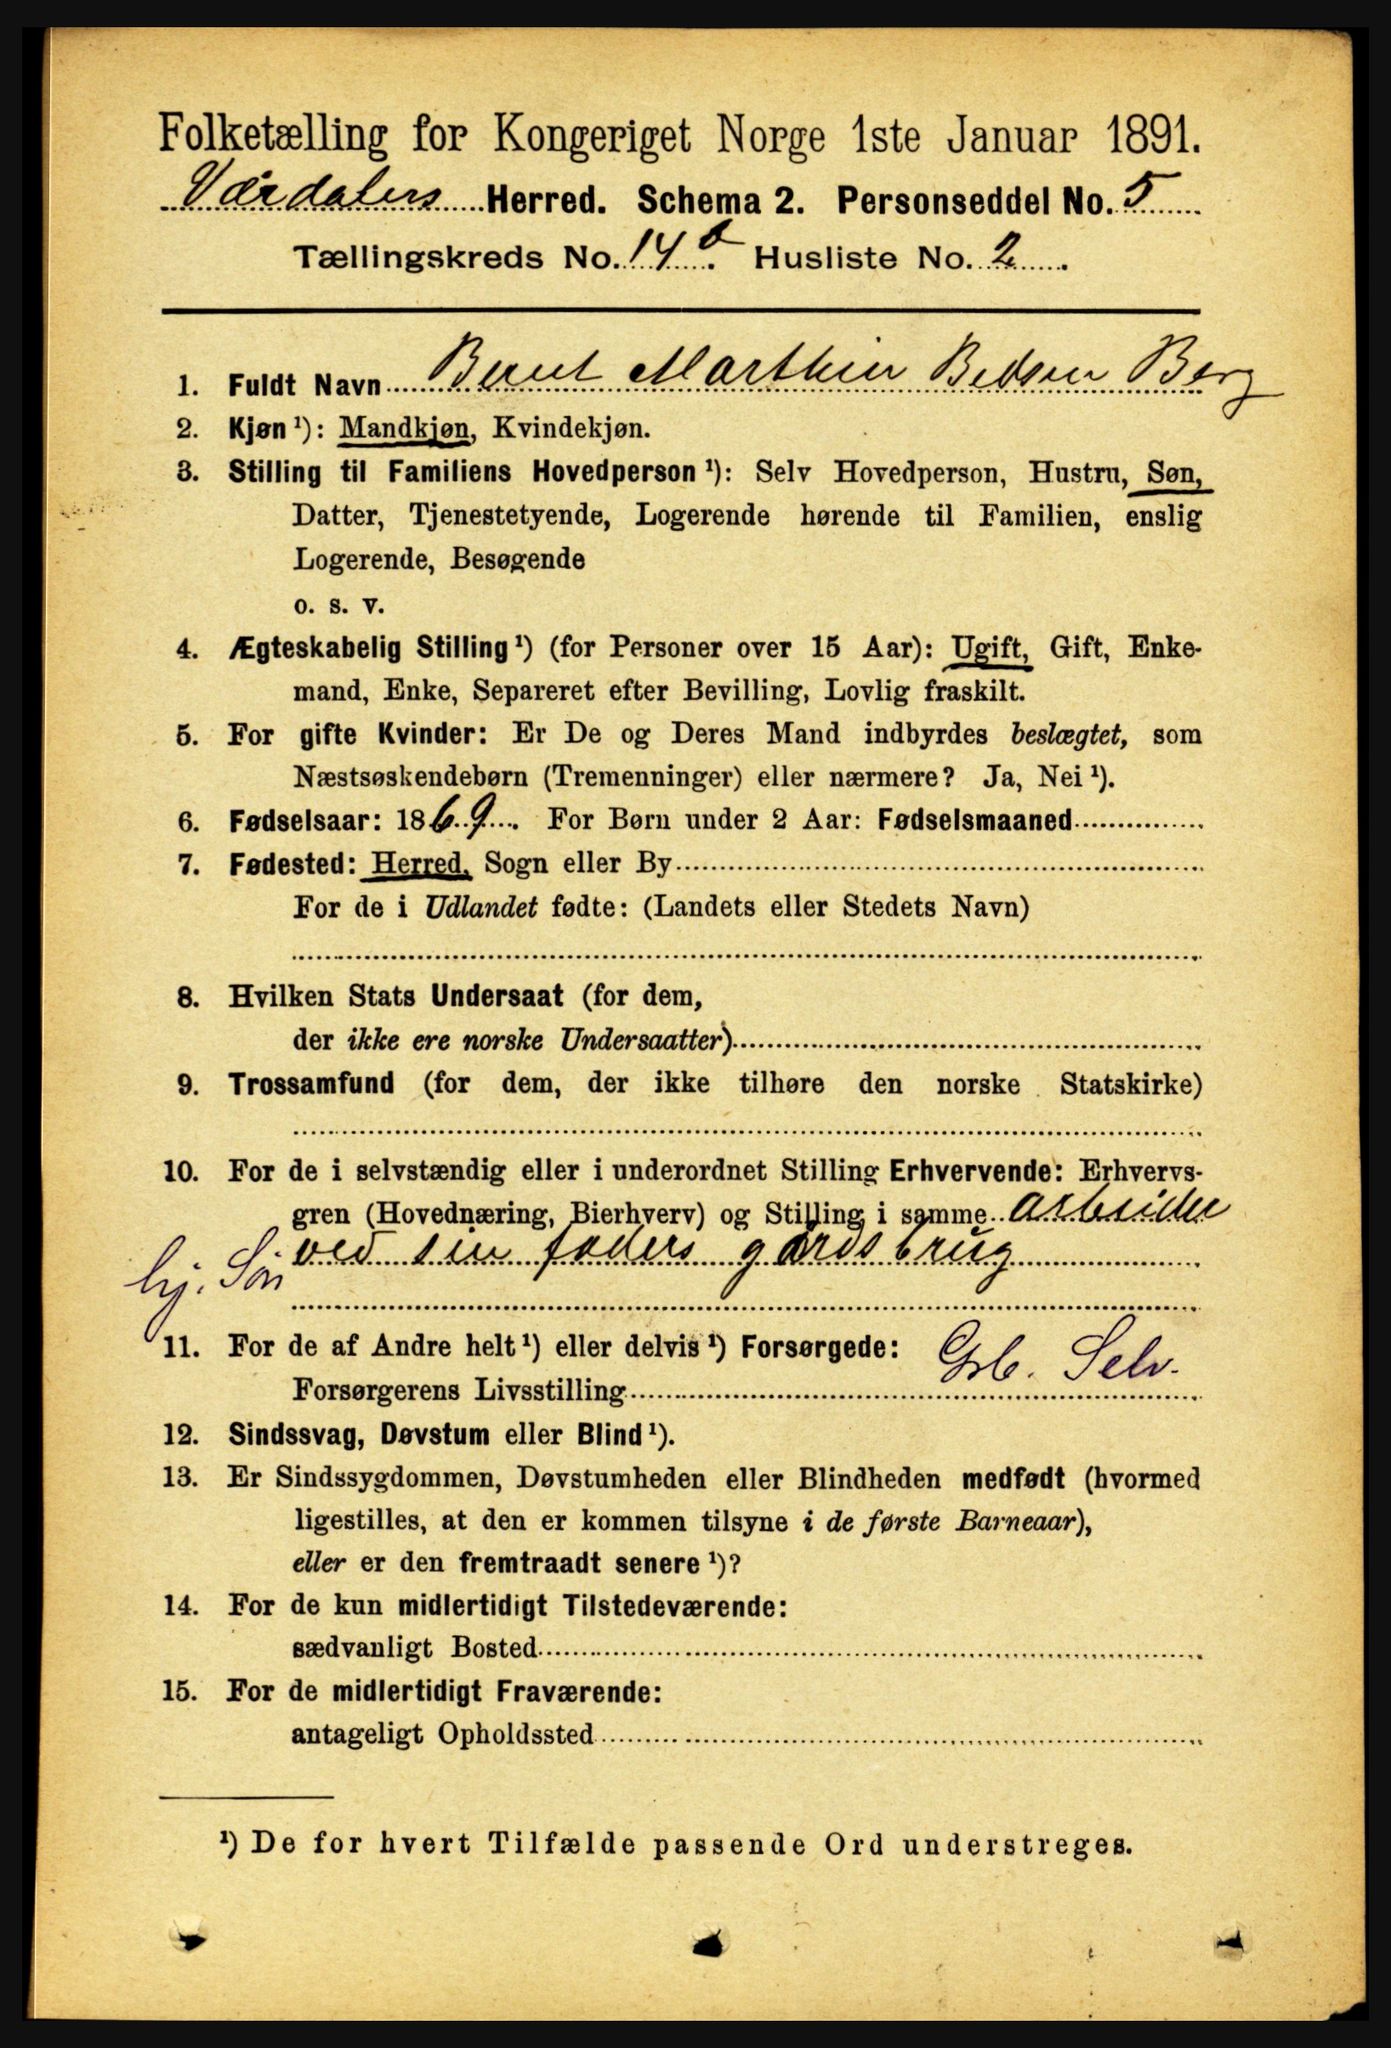 Folketælling for Kongeriget Norge 1ste Januar 1891.
Værdalens Herred. Schema 2. Personseddel No. 5
Tællingskreds No. 14 Husliste No. 2
1. Fuldt Navn Bernt Marthin Berg
2. Kjøn ¹): Mandkjøn, Kvindekjøn.
3. Stilling til Familiens Hovedperson ¹): Selv Hovedperson, Hustru, Søn,
Datter, Tjenestetyende, Logerende hørende til Familien, enslig
Logerende, Besøgende
o. s. v.
4. Ægteskabelig Stilling ¹) (for Personer over 15 Aar): Ugift, Gift, Enke-
mand, Enke, Separeret efter Bevilling, Lovlig fraskilt.
5. For gifte Kvinder: Er De og Deres Mand indbyrdes beslægtet, som
Næstsøskendebørn (Tremenninger) eller nærmere? Ja, Nei ¹).
6. Fødselsaar: 1869. For Børn under 2 Aar: Fødselsmaaned
7. Fødested: Herred, Sogn eller By
For de i Udlandet fødte: (Landets eller Stedets Navn)
8. Hvilken Stats Undersaat (for dem,
der ikke ere norske Undersaatter)
9. Trossamfund (for dem, der ikke tilhøre den norske Statskirke)
10. For de i selvstændig eller i underordnet Stilling Erhvervende: Erhvervs-
gren (Hovednæring, Bierhverv) og Stilling i samme arbeider
ved sin faders gårdsbrug
hj. Søn
11. For de af Andre helt ¹) eller delvis ¹) Forsørgede:
Forsørgerens Livsstilling Grb. Selv.
12. Sindssvag, Døvstum eller Blind ¹).
13. Er Sindssygdommen, Døvstumheden eller Blindheden medfødt (hvormed
ligestilles, at den er kommen tilsyne i de første Barneaar),
eller er den fremtraadt senere ¹)?
14. For de kun midlertidigt Tilstedeværende:
sædvanligt Bosted
15. For de midlertidigt Fraværende:
antageligt Opholdssted
¹) De for hvert Tilfælde passende Ord understreges.